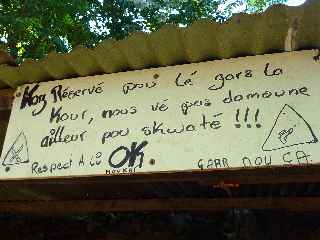 Koz Réservé pou lé gars la
Kour, nous vé pas domoune
ailleur pou skwaté !!!
Respect A Li OK. GARR NOU ÇA.